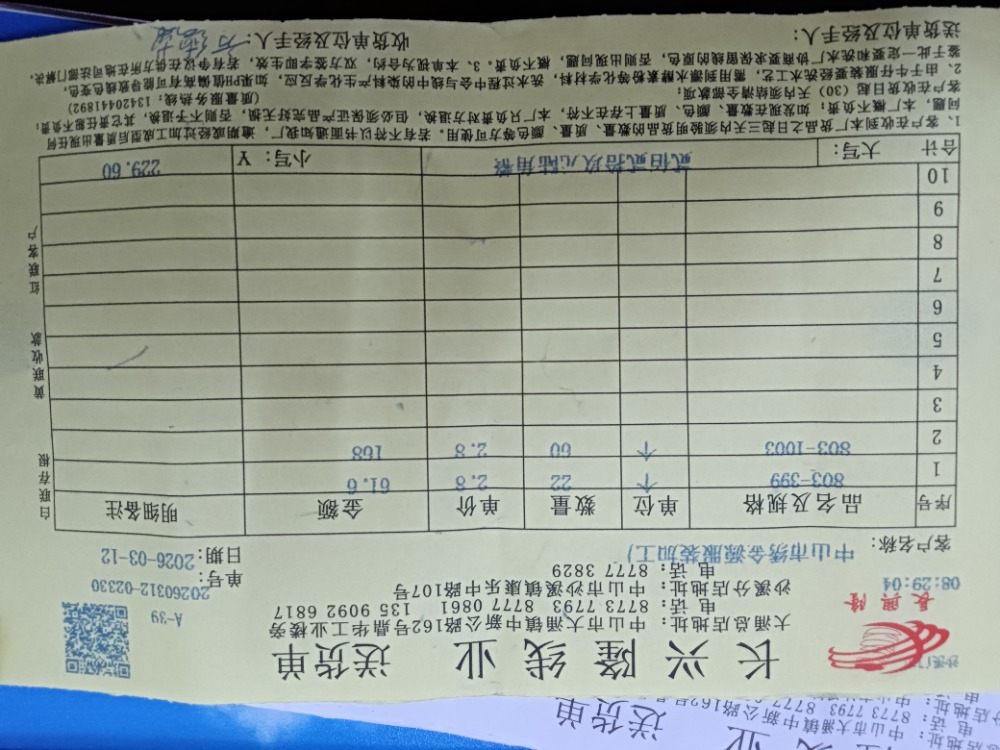 长兴隆线业 送货单
沙溪
長興隆
08:29:04
A-39
大涌总店地址：中山市大涌镇中新公路162号鼎华工业楼旁
电话：8773 7793 8777 0861 135 9092 6817
沙溪分店地址：中山市沙溪镇康乐中路107号
电话：8777 3829
单号：20260312-02330
客户名称：中山市绣金源服装加工)
日期：2026-03-12
序号 品名及规格 单位 数量 单价 金额 明细备注
1 803-399 个 22 2.8 61.6
2 803-1003 个 60 2.8 168
3
4
5
6
7
8
9
10
合计 大写：贰佰贰拾玖元陆角整 小写：￥ 229.60
白联存根 黄联收款 红联客户
1、客户在收到本厂货品之日起三天内须验明货品的数量、质量、颜色等方可使用，若有不符以书面通知我厂，逾期或经过加工成型后质量出现任何
问题，本厂概不负责；如发现在数量、颜色、质量上存在不符，本厂只负责对方退换，但必须保证产品完好无损，否则不予退换，其它责任恕不负责；
客户在收货日起（30）天内须结清全部款项； (质量服务热线：13420441892)
2、由于牛仔服装要经洗水工艺，需用到漂水酵素粉等化学材料，洗水过程中会与线中的染料产生化学反应，如果PH值偏高有可能导致线色变色，
鉴于此一定要和洗水厂协商要求保留线的原色，否则出现问题，概不负责，3、本单视为合约，双方签字即生效，若有争议在供方所在地司法部门解决。
送货单位及经手人： 收货单位及经手人：
送货单
中山市大涌镇中新公路162号
电话：8773 7793 8777